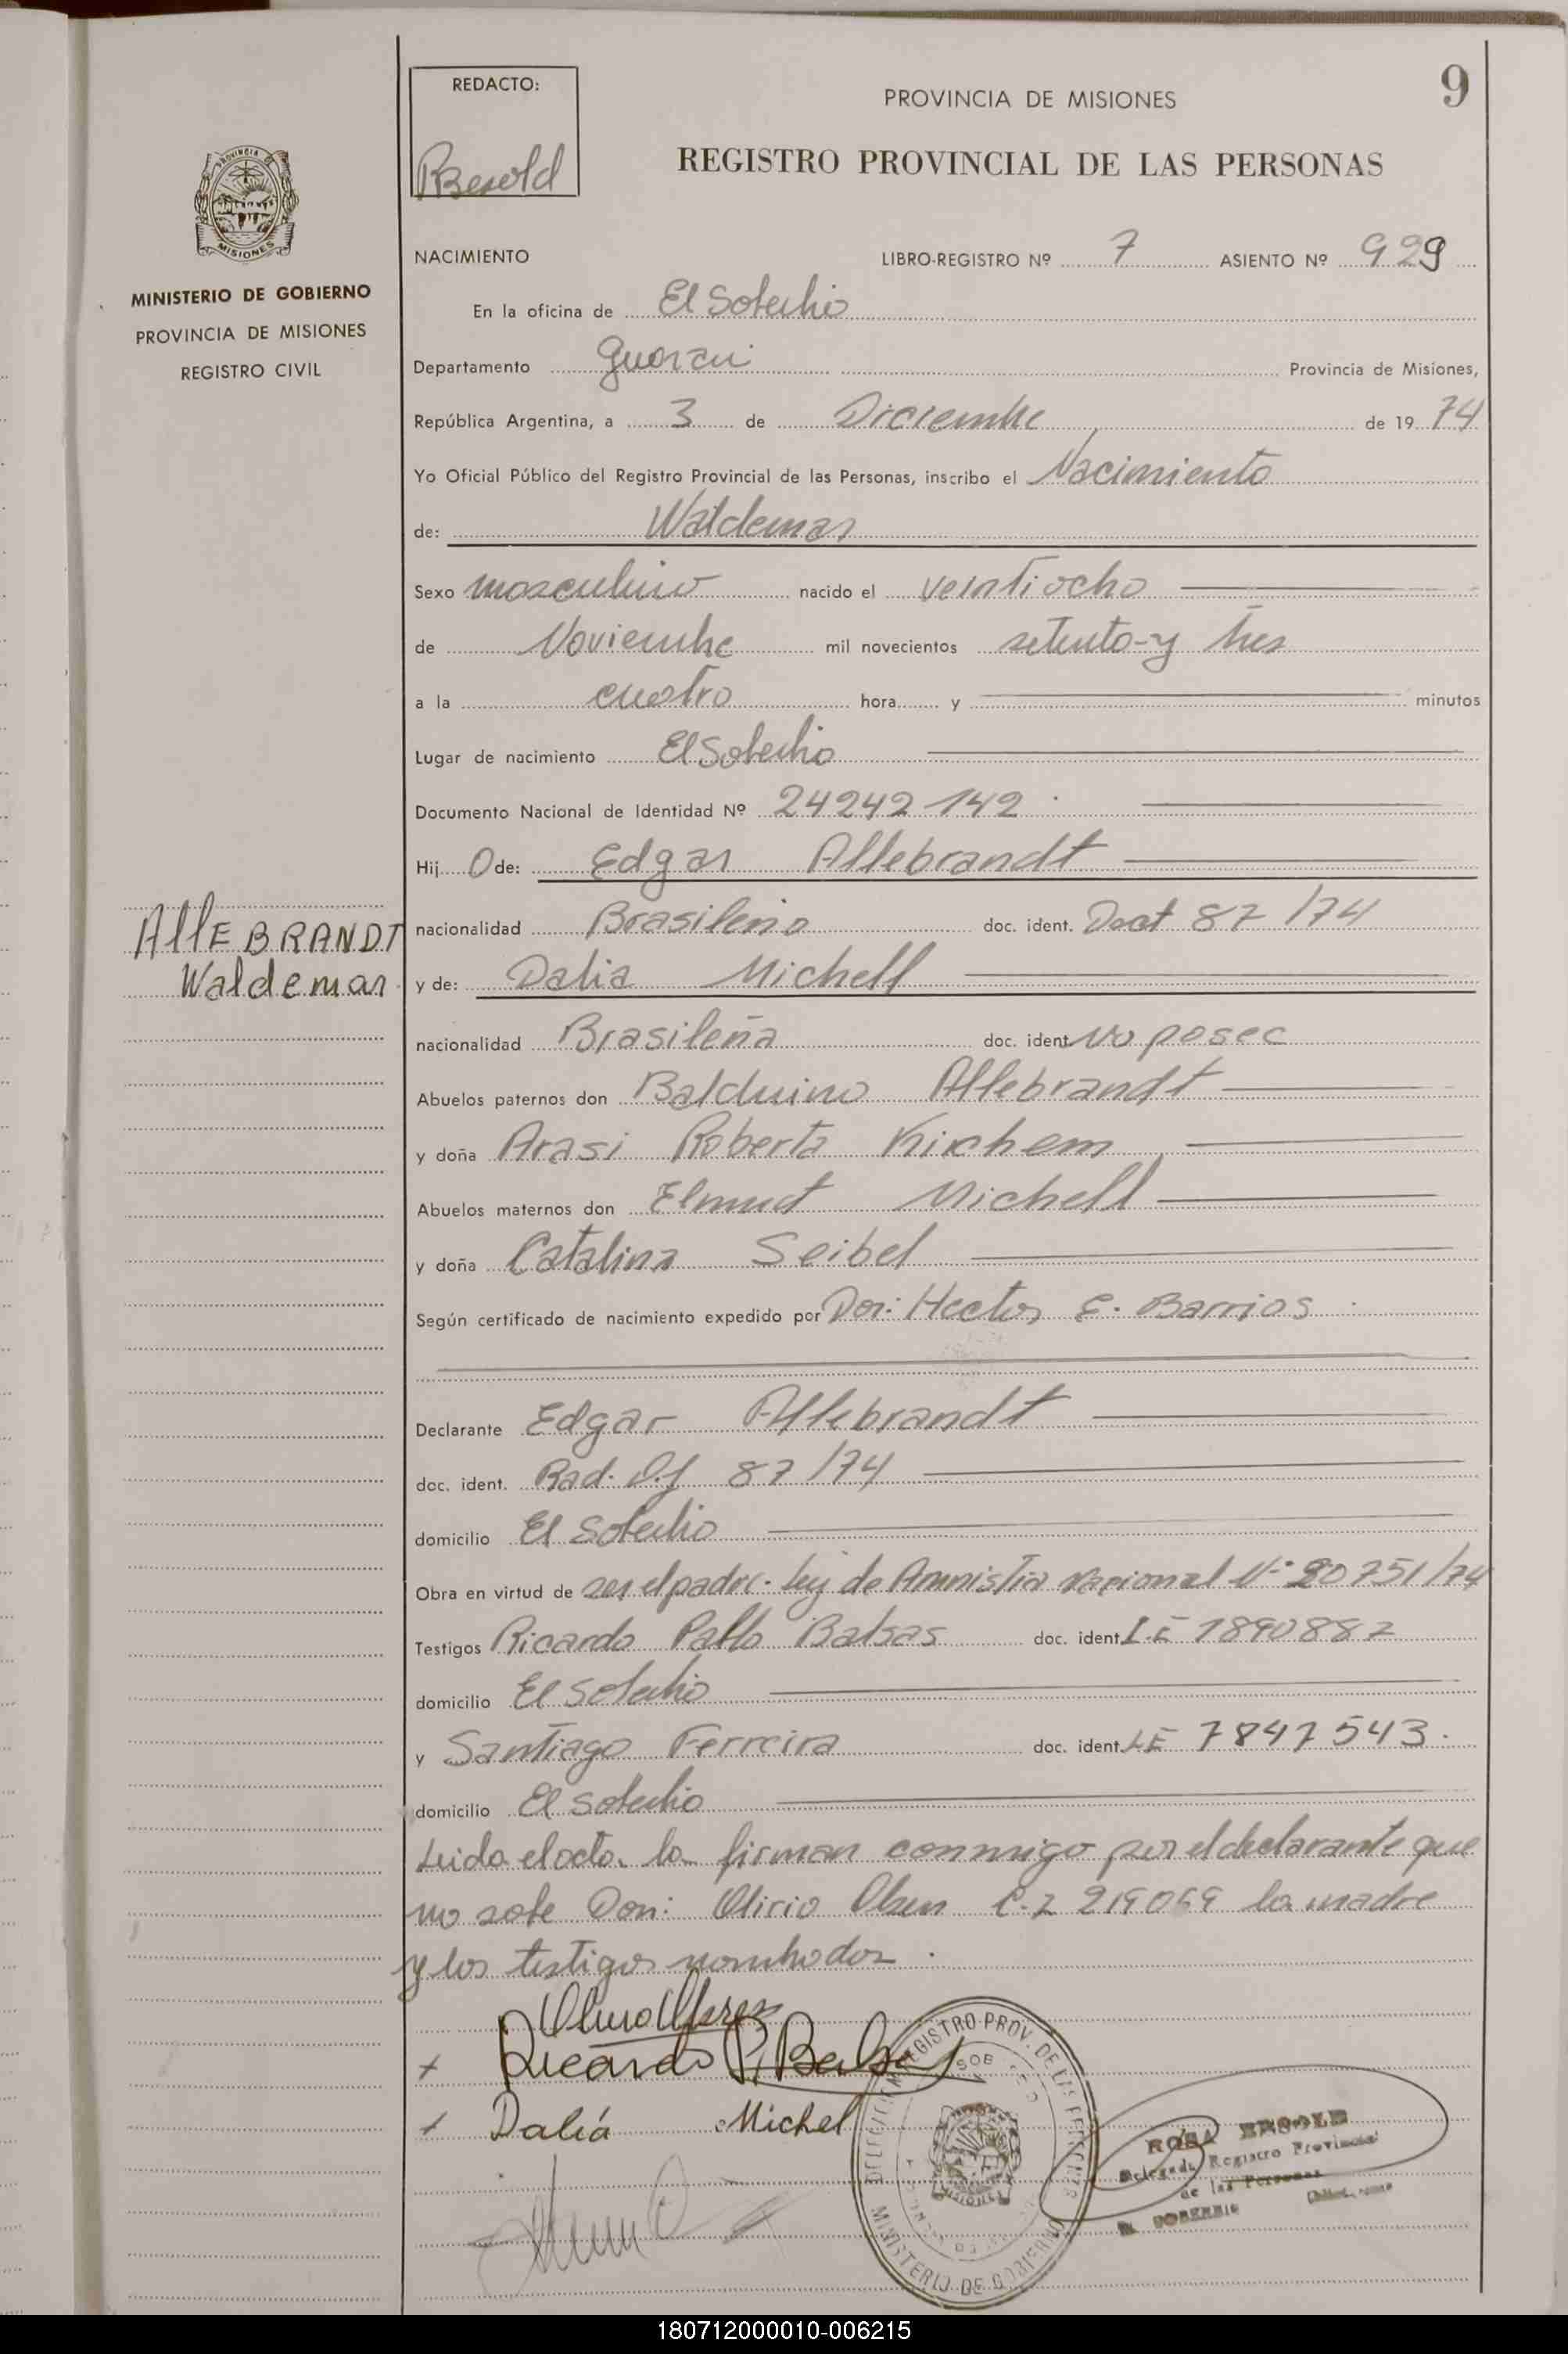 9
REDACTO:
PROVINCIA DE MISIONES
REGISTRO PROVINCIAL DE LAS PERSONAS
PROVINCIA DE
MISIONES
MINISTERIO DE GOBIERNO
PROVINCIA DE MISIONES
REGISTRO CIVIL
NACIMIENTO LIBRO-REGISTRO Nº 7 ASIENTO Nº 929
En la oficina de El Soberbio
Departamento Guarani Provincia de Misiones,
República Argentina, a 3 de Diciembre de 19 74
Yo Oficial Público del Registro Provincial de las Personas, inscribo el Nacimiento
de: Waldemar
Sexo masculino nacido el veintiocho
de Noviembre mil novecientos setenta y tres
a la cuatro hora y minutos
Lugar de nacimiento El Soberbio
Documento Nacional de Identidad Nº 24242142
Hij o de: Edgar Allebrandt
AllEBRANDT
Waldemar
nacionalidad Brasileño doc. ident. 87/74
y de: Dalia Michell
nacionalidad Brasileña doc. ident no posee
Abuelos paternos don Balduino Allebrandt
y doña Arasi Roberta Kirchem
Abuelos maternos don Elmut Michell
y doña Catalina Seibel
Según certificado de nacimiento expedido por Hector E. Barrios
Declarante Edgar Allebrandt
doc. ident. Rad. 87/74
domicilio El Soberbio
Obra en virtud de ser el padre. Ley de Amnistia Nacional Nº 20751/74
Testigos Ricardo Pablo Balsas doc. ident L.E 1890882
domicilio El Soberbio
y Santiago Ferreira doc. ident LE 7847543.
domicilio El Soberbio
Leida el acta. la firman conmigo por el declarante que
no sabe Don: Olirio Olsen C.I 219069 la madre
y los testigos nombrados.
Ricardo P. Balsas
Dalía Michel
REGISTRO PROV. DE LAS PERSONAS
MINISTERIO DE GOBIERNO
MISIONES
ROSA BESOLD
Delegada Registro Provincial
de las Personas
EL SOBERBIO
180712000010-006215